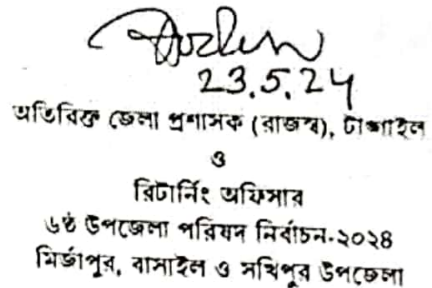 23.5.24
অতিরিক্ত জেলা প্রশাসক (রাজস্ব), টাঙ্গাইল
ও
রিটার্নিং অফিসার
৬ষ্ঠ উপজেলা পরিষদ নির্বাচন-২০২৪
মির্জাপুর, বাসাইল ও সখিপুর উপজেলা